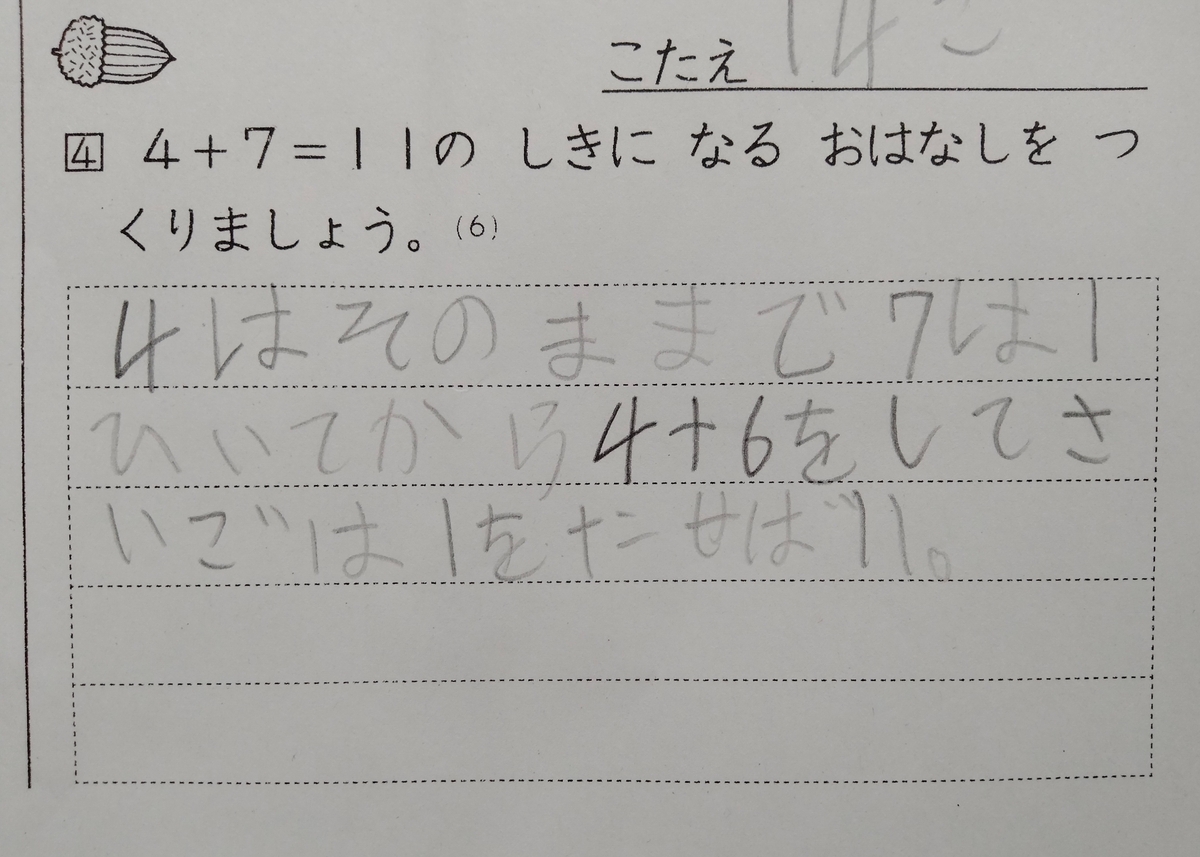 こたえ 14こ
4 4+7=11の しきに なる おはなしを つ
くりましょう。(6)
4はそのままで7は1
ひいてから4+6をしてさ
いごは1をたせば11。